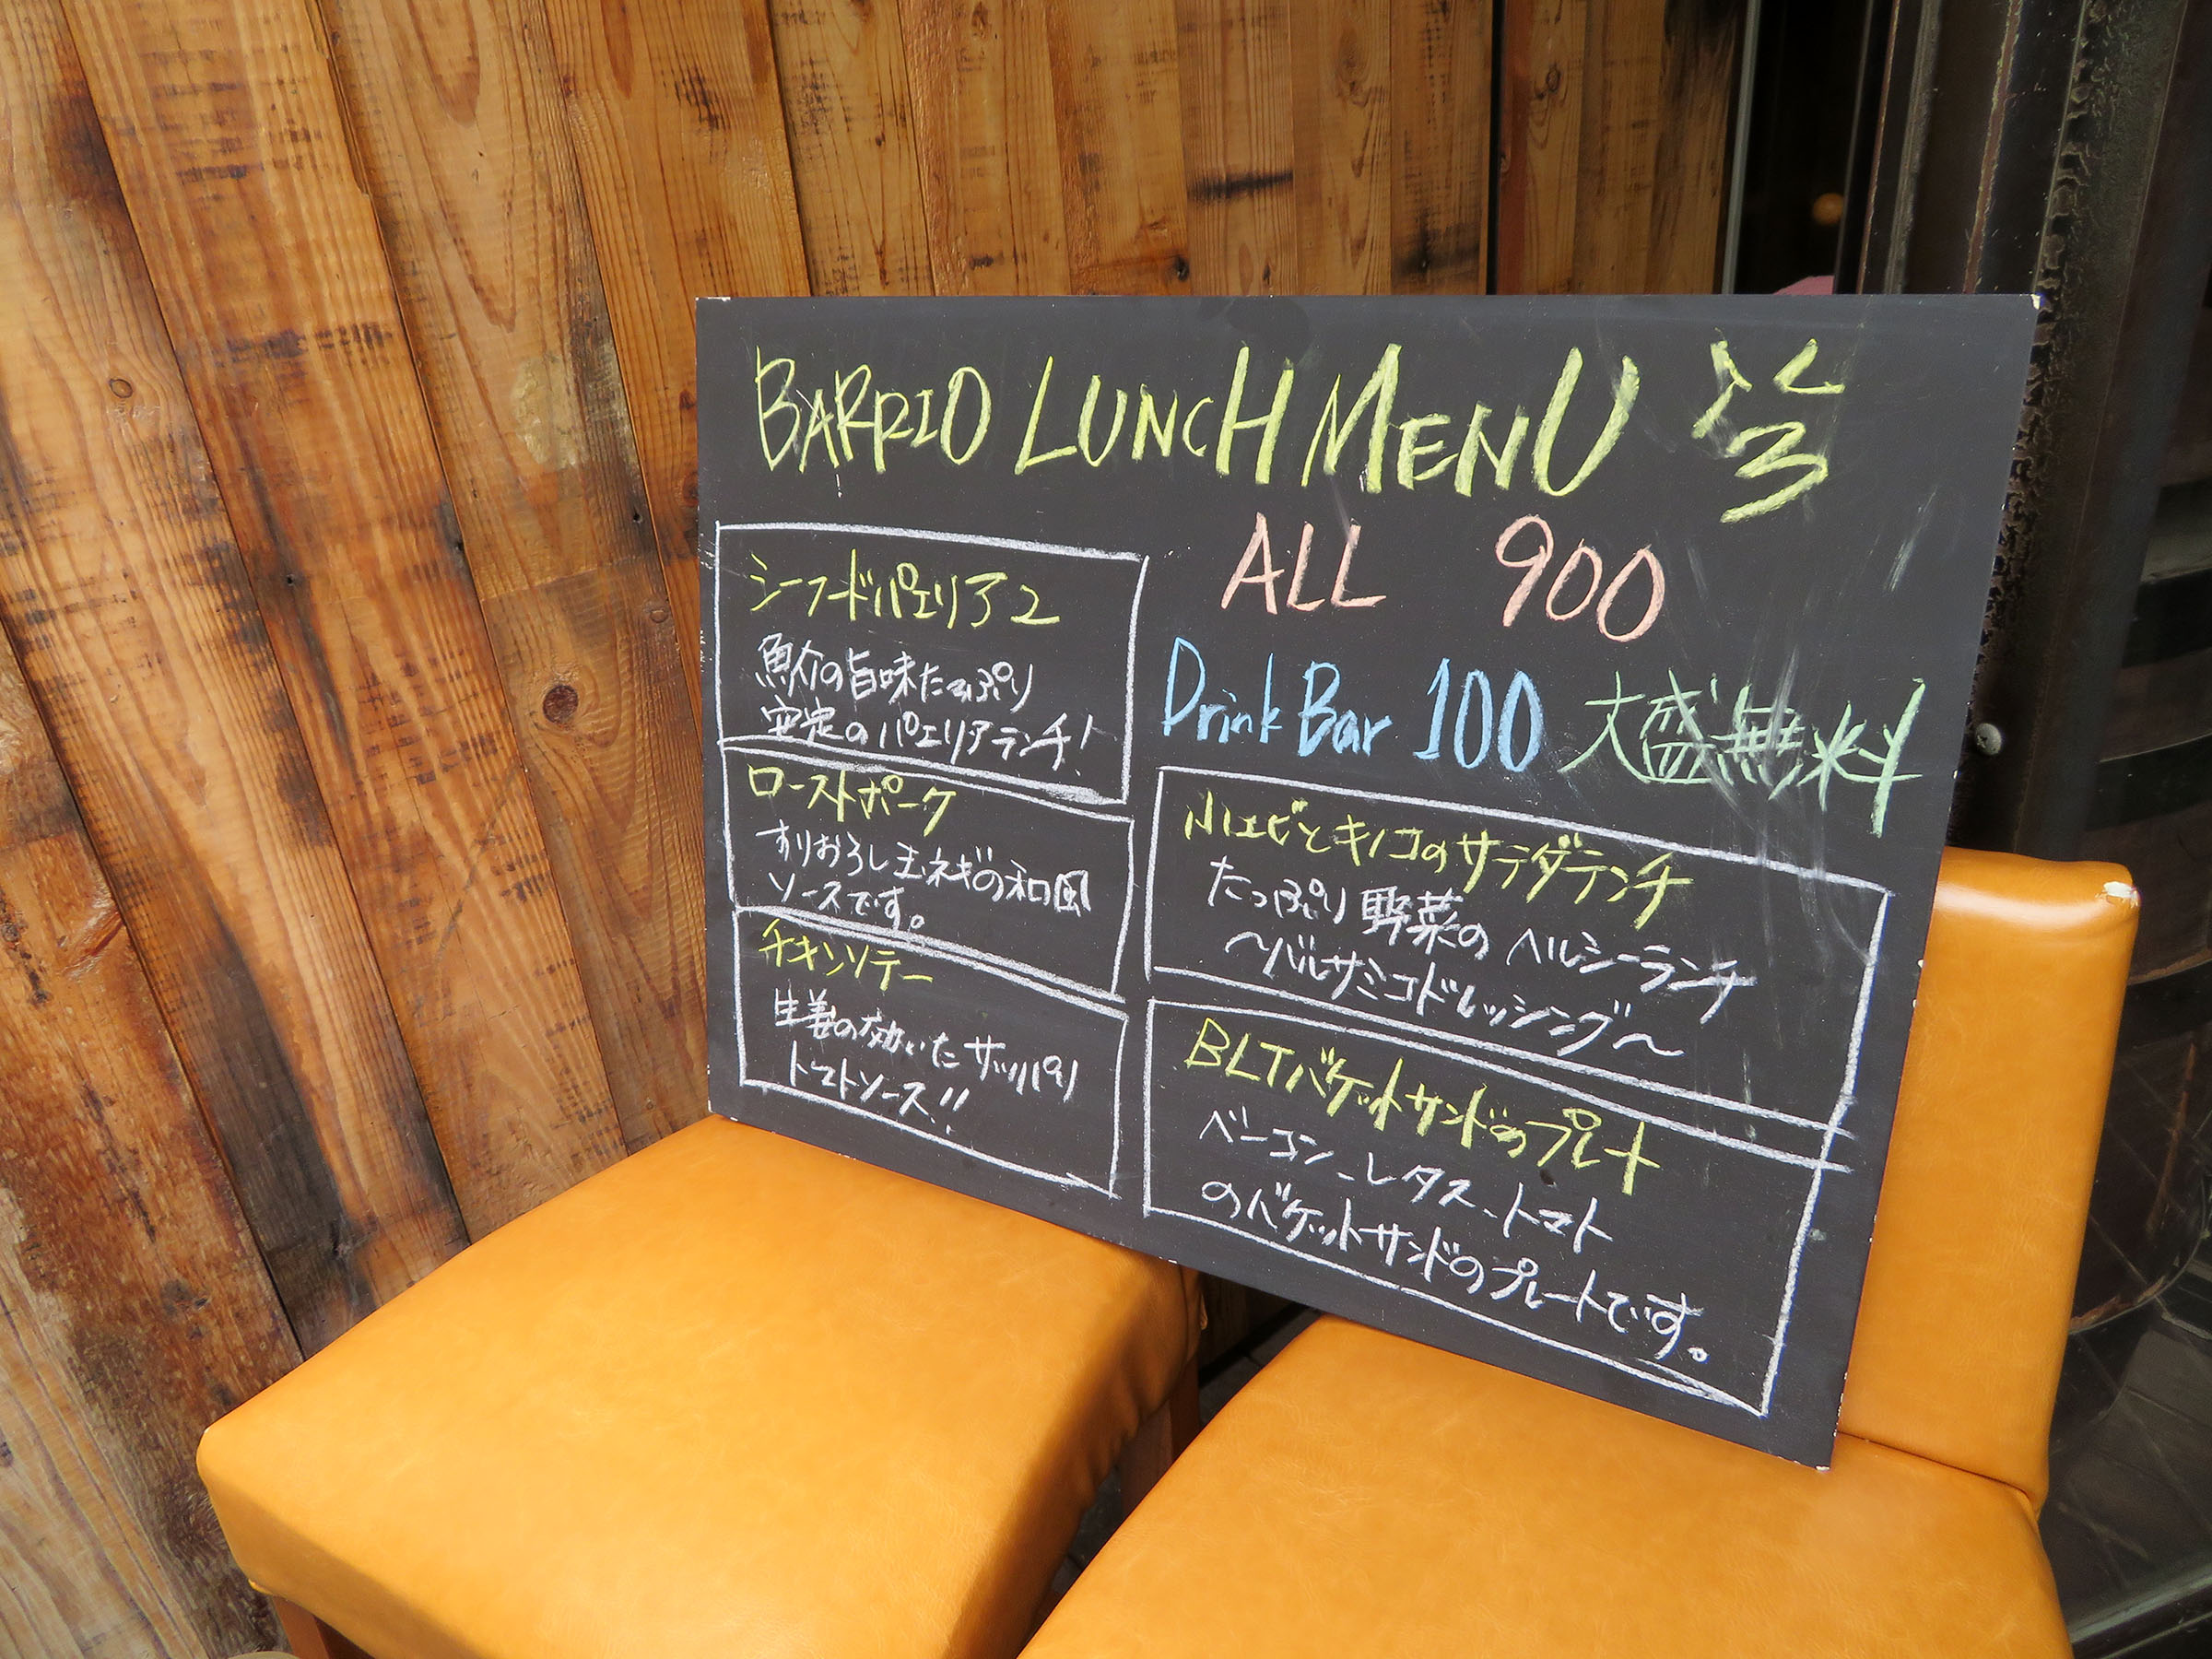 BARRIO LUNCH MENU
ALL 900
Drink Bar 100 大盛無料
シーフードパエリア
魚介の旨味たっぷり
安定のパエリアランチ!
ローストポーク
すりおろし玉ネギの和風
ソースです。
チキンソテー
生姜の効いたサッパリ
トマトソース!!
小エビとキノコのサラダランチ
たっぷり野菜のヘルシーランチ
〜バルサミコドレッシング〜
BLTバケットサンドのプレート
ベーコン、レタス、トマト
のバケットサンドのプレートです。